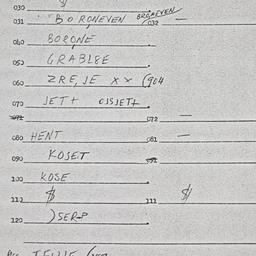 030 $
031 BORONEVEN BRONEVEN 032 —
040 BORONE
050 GRABLBE
060 ZRE,JE XX (904
070 JETT OJSJETT
072 072 —
080 HENT 081 —
090 KOSET 092
100 KOSE
110 $ 111 $
120 )SERP